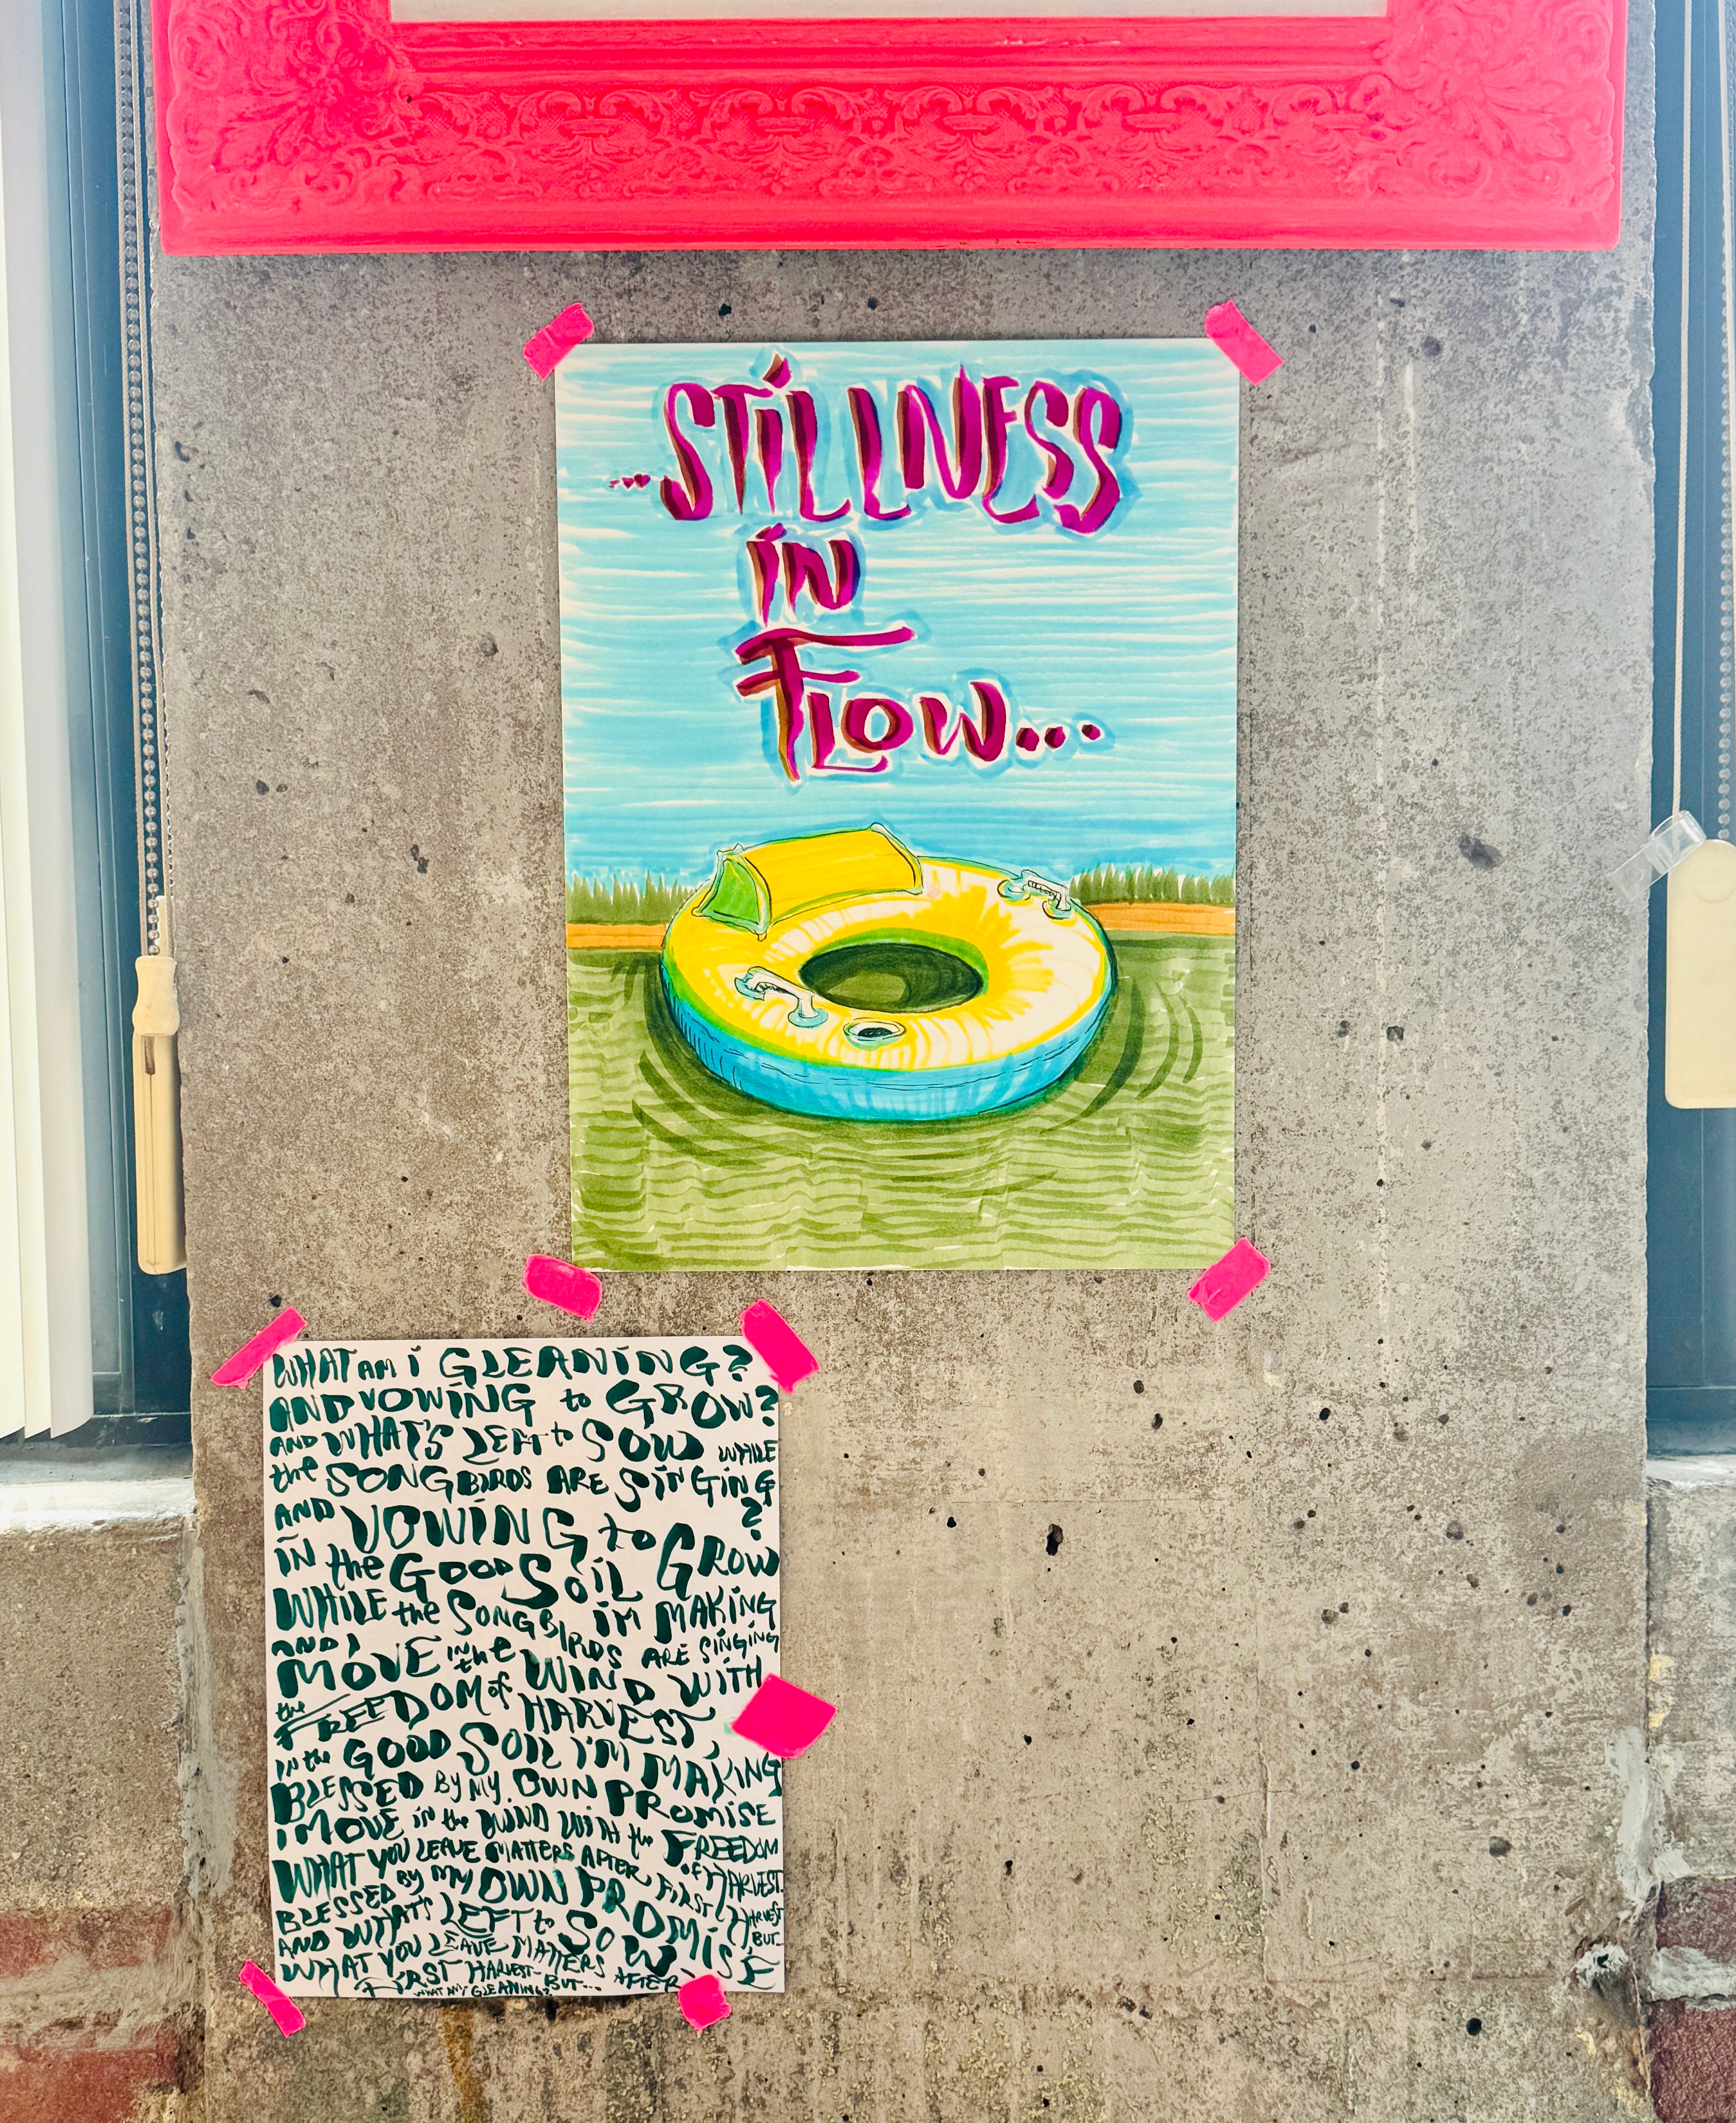 ...STiLLNESS
iN
FLOW...
WHAT AM i GLEANiNG?
AND VOWiNG to GROW?
AND WHAT'S LEFT to SOW WHiLE
the SONGBiRDS ARE SiNGiNG
?
AND VOWiNG to GROW
iN the GOOD SOiL
WHiLE the SONGBiRDS ARE SiNGiNG
i'M MAKiNG
AND i MOVE iN the WiND WiTH
the FREEDOM of HARVEST,
iN the GOOD SOiL i'M MAKiNG
BLESSED BY MY OWN PROMiSE
i MOVE iN the WiND WiTH the FREEDOM
OF HARVEST.
WHAT YOU LEAVE MATTERS AFTER FiRST HARVEST
BUT...
BLESSED BY MY OWN PROMiSE
AND WHAT'S LEFT to SOW
WHAT YOU LEAVE MATTERS AFTER
FiRST HARVEST- BUT...
WHAT AM i GLEANiNG?